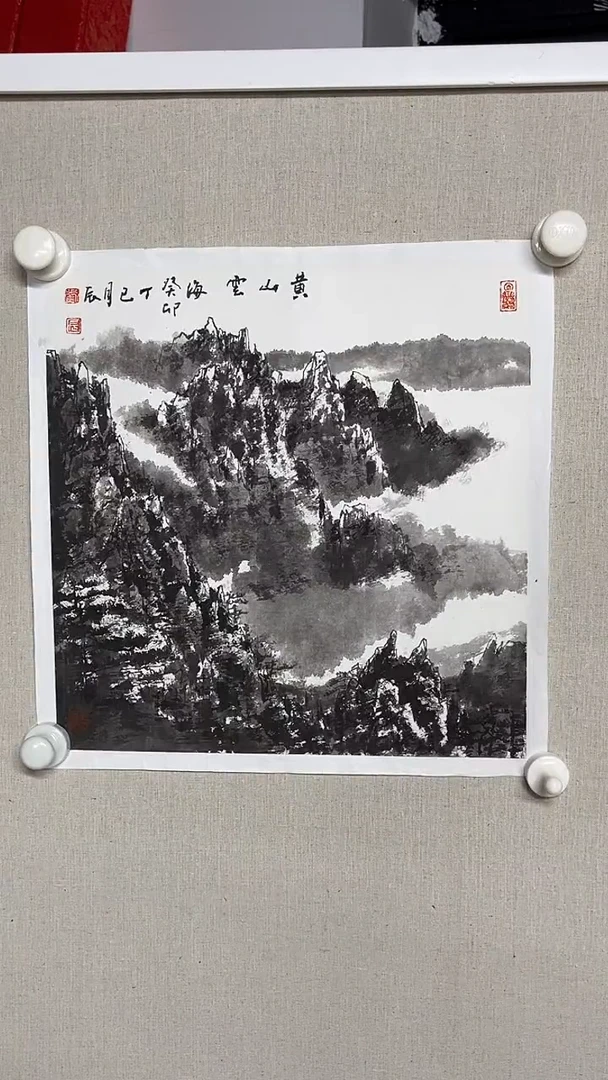 黄山雲海
癸卯
丁巳月辰